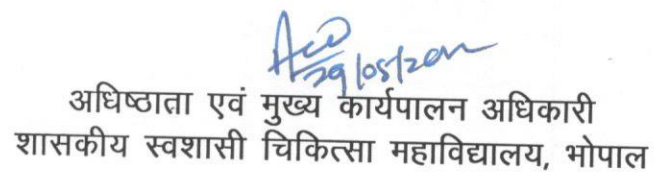 29/05/20
अधिष्ठाता एवं मुख्य कार्यपालन अधिकारी
शासकीय स्वशासी चिकित्सा महाविद्यालय, भोपाल